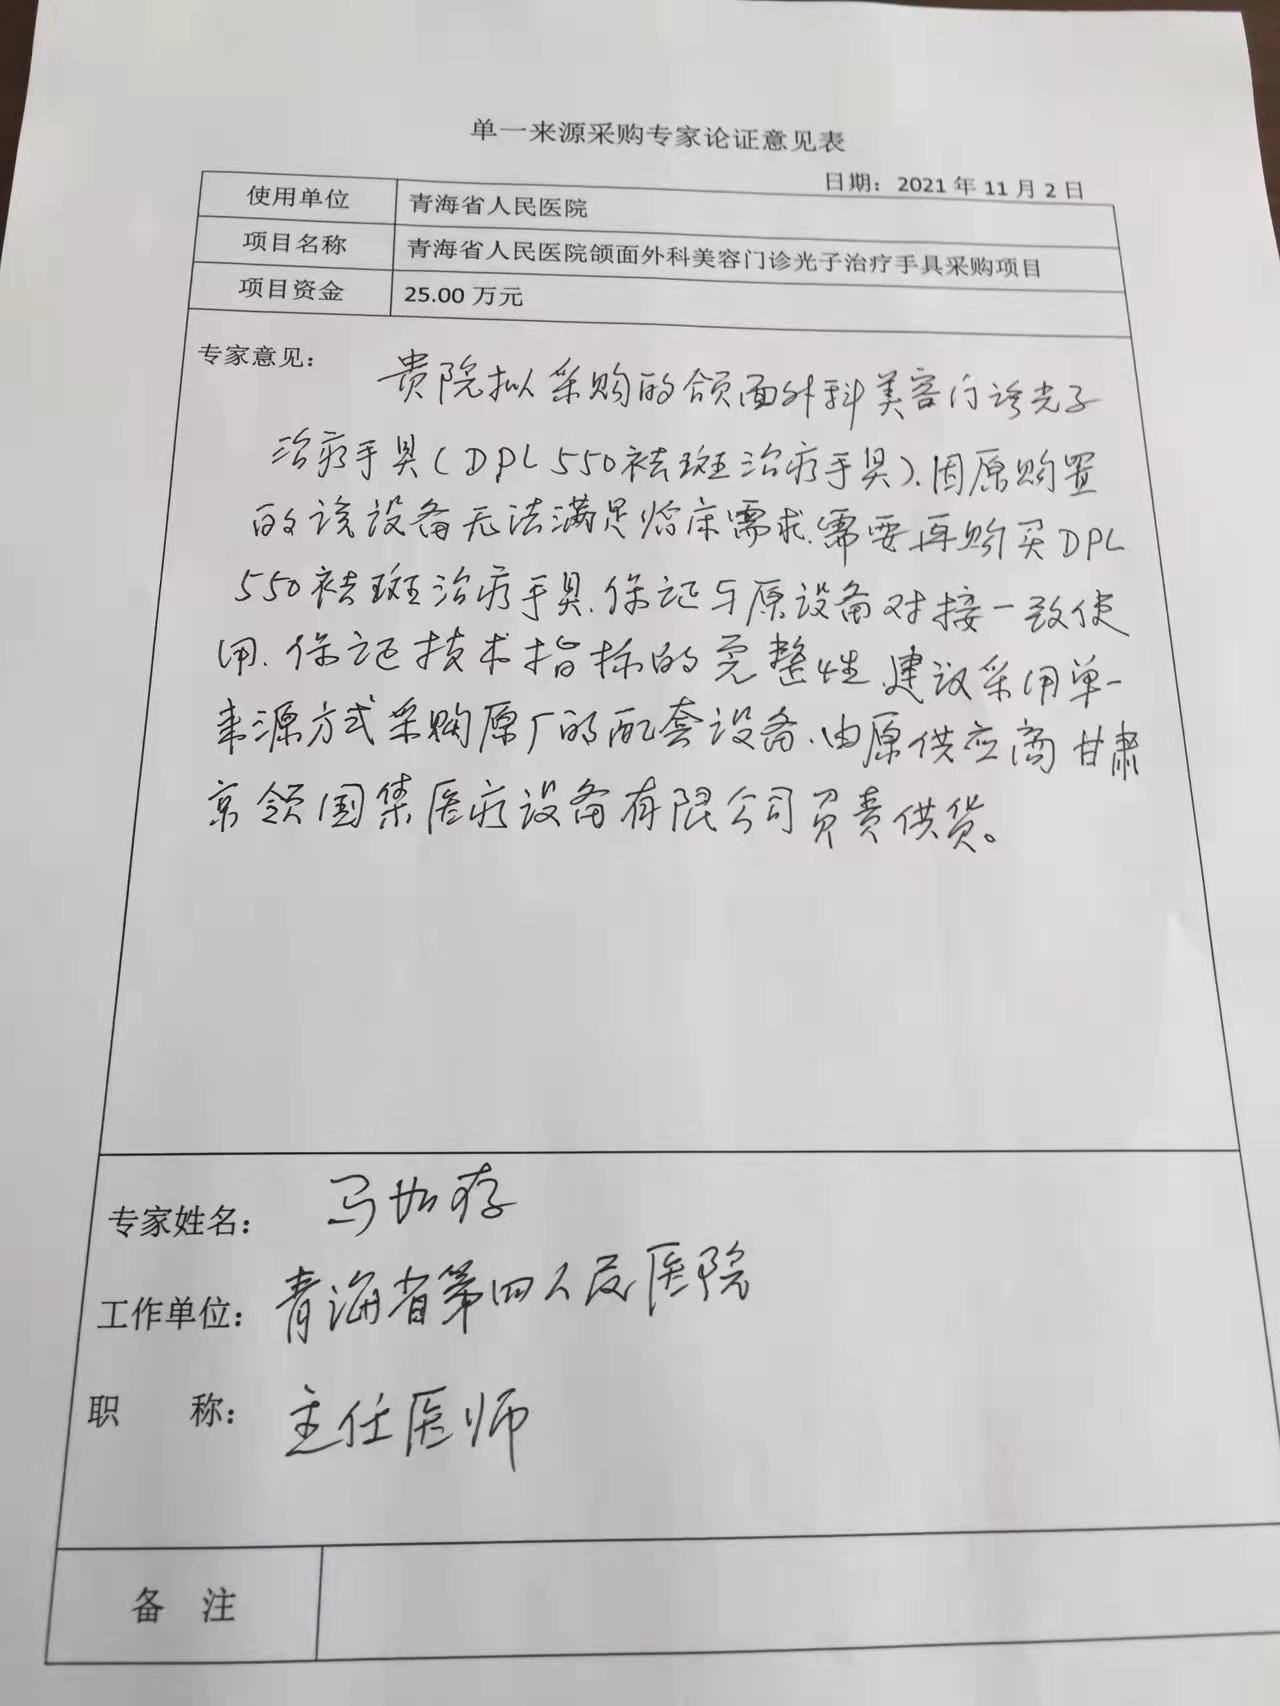 单一来源采购专家论证意见表
日期：2021年11月2日
使用单位 青海省人民医院
项目名称 青海省人民医院颌面外科美容门诊光子治疗手具采购项目
项目资金 25.00万元
专家意见：
贵院拟采购的颌面外科美容门诊光子
治疗手具(DPL 550祛斑治疗手具)、因原购置
的该设备无法满足临床需求、需要再购买DPL
550祛斑治疗手具、保证与原设备对接一致使
用、保证技术指标的完整性、建议采用单一
来源方式采购原厂的配套设备、由原供应商甘肃
京领国集医疗设备有限公司负责供货。
专家姓名：马加存
工作单位：青海省第四人民医院
职 称：主任医师
备 注